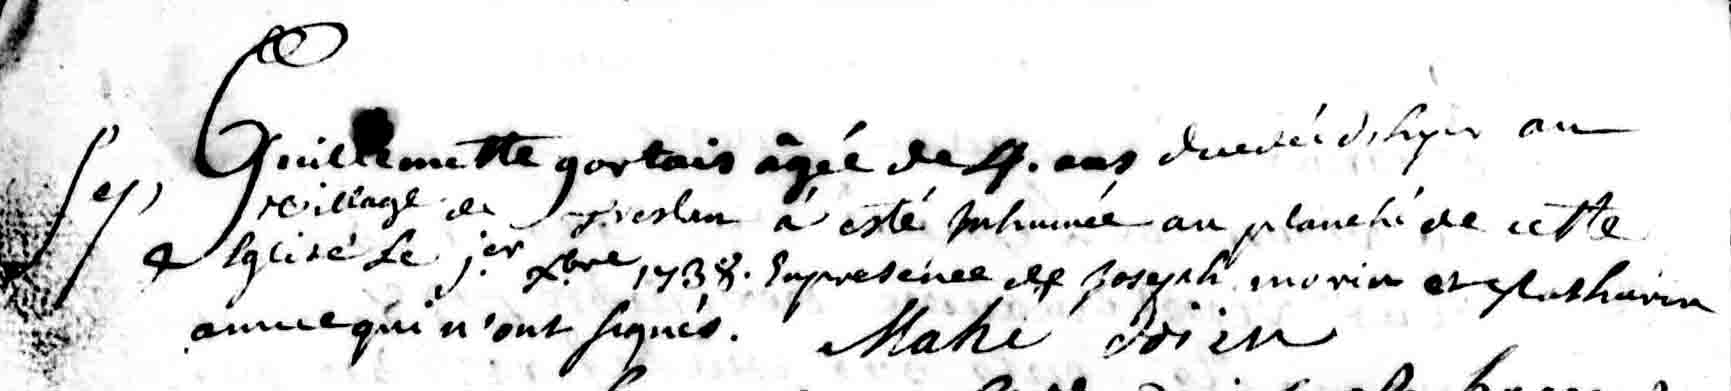 Sep.
Guillemette gortais âgée de 4. ans décédée d'hyer au
village de Treslan à esté Inhumée au planché de cette
Eglise Le jer xbre 1738. En presence de Joseph morin et Matharin
annee qui n'ont signés. Mahé